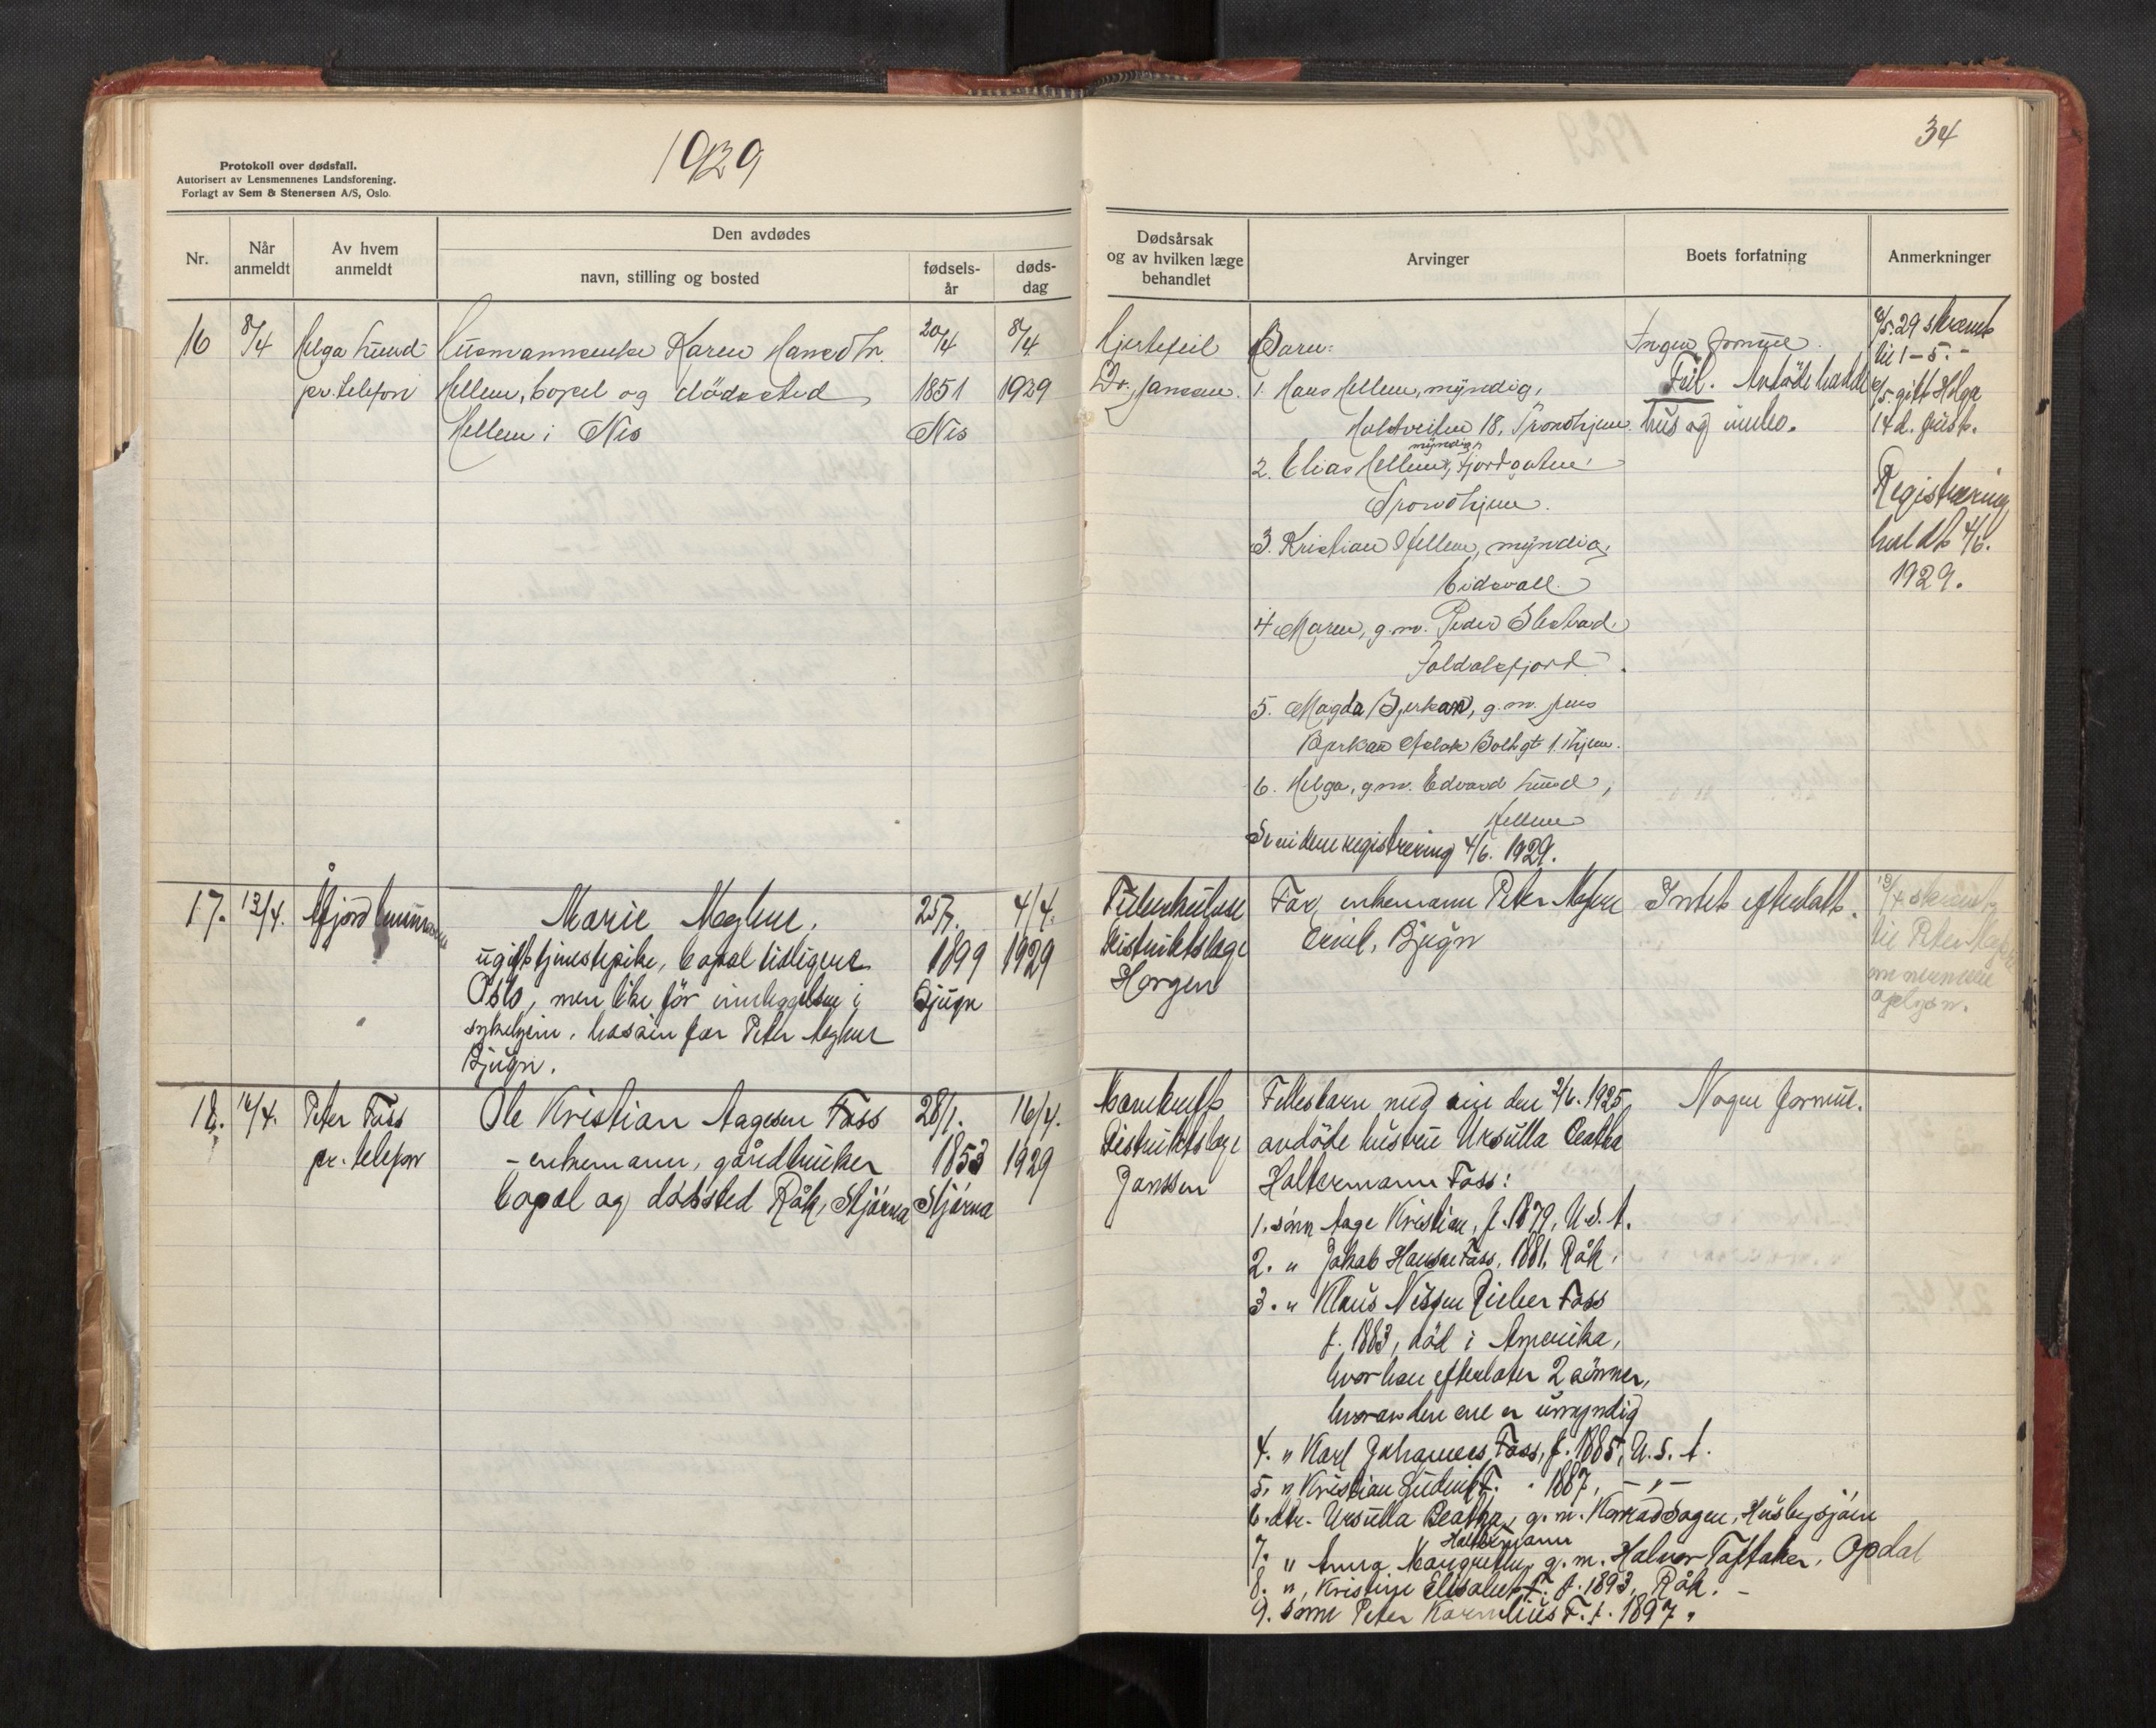 1929
34
Protokoll over dødsfall.
Autorisert av Lensmennenes Landsforening.
Forlagt av Sem & Stenersen A/S, Oslo.
Nr.
Når anmeldt
Av hvem anmeldt
Den avdødes
navn, stilling og bosted
fødsels-år
døds-dag
Dødsårsak og av hvilken læge behandlet
Arvinger
Boets forfatning
Anmerkninger
16
8/4
Helga Lund
pr. telefon
Husmannsenke Karen Hansdtr.
Hellem, bopel og dödssted
Hellem i Nes
20/4
1851
Nes
8/4
1929
Hjertefeil
Dr. Jansen.
Barn:
1. Hans Hellem, myndig,
18, Trondhjem.
2. Elias Hellem, myndig, Fjordgaten
Trondhjem.
3. Kristian Hellem, myndig,
Eidsvall
4 Maren, g.m. Peder
5. Magda Bjerkan, g.m. Jens
Bjerkan Aslak Boltsgt 1. Thjem.
6. Helga, g.m. Edvard Lund,
Hellem
Se videre registrering 4/6. 1929.
Ingen formue.
Feil. Avdöde hadde
hus og innbo.
/5.29 skrevet
til 1-5.-
/5. gitt Helga
14 d. frist.
Registrering
holdt 4/6.
1929.
17.
13/4.
Åfjord
Marie Meglue.
ugift tjenestepike, bopæl tidligere
Oslo, men like för innleggelsen i
sykehjem, hos sin far Peter
Bjugn.
25/7.
1899
Bjugn
4/4.
1929
Tuberkulose
Distriktslæge
Horgen
Far, enkemann Peter
Bjugn
Intet efterlatt.
13/4 skrevet
til Peter
om nærmere
oplysn.
18.
16/4.
Peter Fass
pr. telefon
Ole Kristian Aagesen Foss
- enkemann, gårdbruker
bopæl og dödssted Råk, Stjörna
28/1.
1853
Stjörna
16/4.
1929
Distriktslæge
Janssen
Fellesbarn med sin den 2/6. 1925
avdöde hustru Ursulla Beatha
Holtermann Foss:
1. sönn Aage Kristian, f. 1879, U.S.A.
2. " Jakob Hansen Foss, 1881, Råk.
3. " Klaus Nissen Rieber Foss
f. 1883, död i Amerika,
hvor han efterlater 2 sönner,
hvorav den ene er umyndig
4. " Karl Johannes Foss, f. 1885, U.S.A.
5. " Kristian F. " 1887, - " -
6. dtr. Ursulla Beatha, g.m. Husbysjöen
7. " Anna Margrethe Holtermann g.m. Halvor Opdal
8. " Kristine Elisabet F. f. 1893, Råk. -
9. sönn Peter Kornelius F. f. 1897 "
Nogen formue.